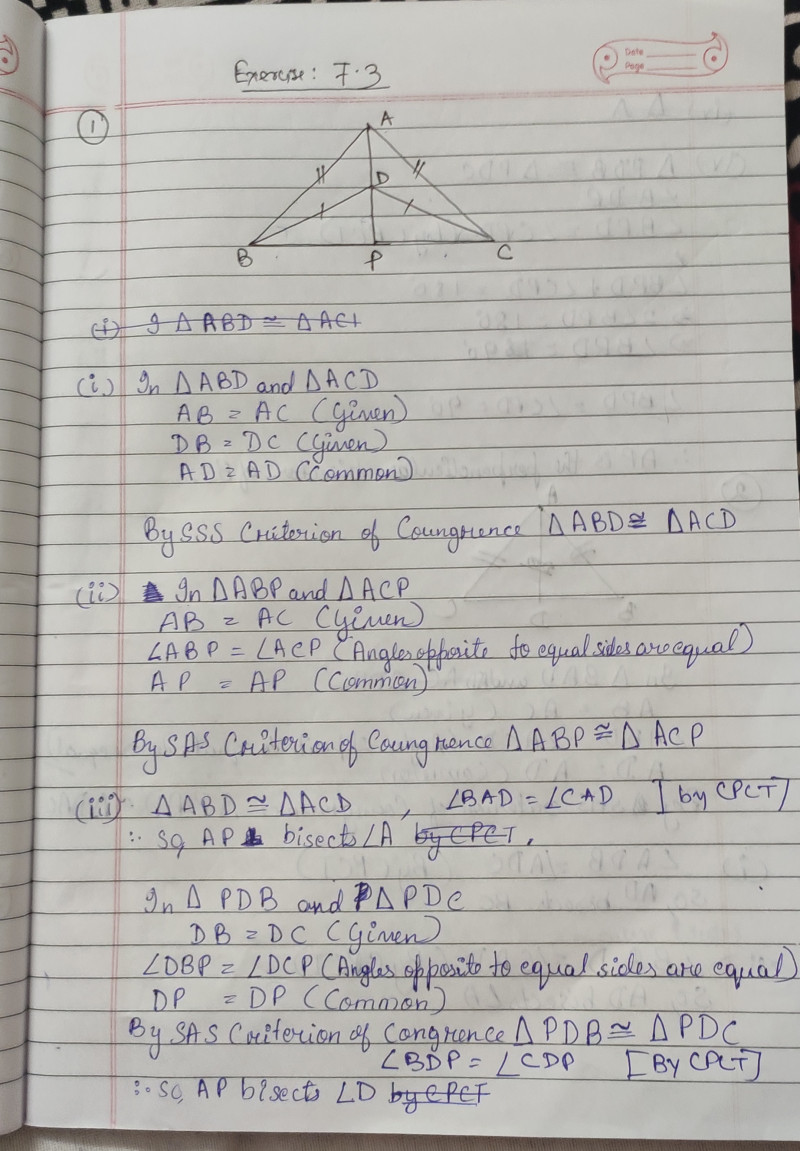 Date
Page
Exercise: 7.3
1
A
D
B
P
C
(i) I △ ABD ≅ △ AC
(i) In △ABD and △ACD
AB = AC (Given)
DB = DC (Given)
AD = AD (Common)
By SSS Criterion of Coungrence △ABD ≅ △ACD
(ii) In △ABP and △ACP
AB = AC (Given)
∠ABP = ∠ACP (Angles opposite to equal sides are equal)
AP = AP (Common)
By SAS Criterion of Coungrence △ABP ≅ △ACP
(iii) △ABD ≅ △ACD , ∠BAD = ∠CAD [by CPCT]
∴ So, AP bisects ∠A by CPCT.
In △ PDB and △PDC
DB = DC (Given)
∠DBP = ∠DCP (Angles opposite to equal sides are equal)
DP = DP (Common)
By SAS Criterion of Congrence △PDB ≅ △PDC
∠BDP = ∠CDP [By CPCT]
∴ So, AP bisects ∠D by CPCT